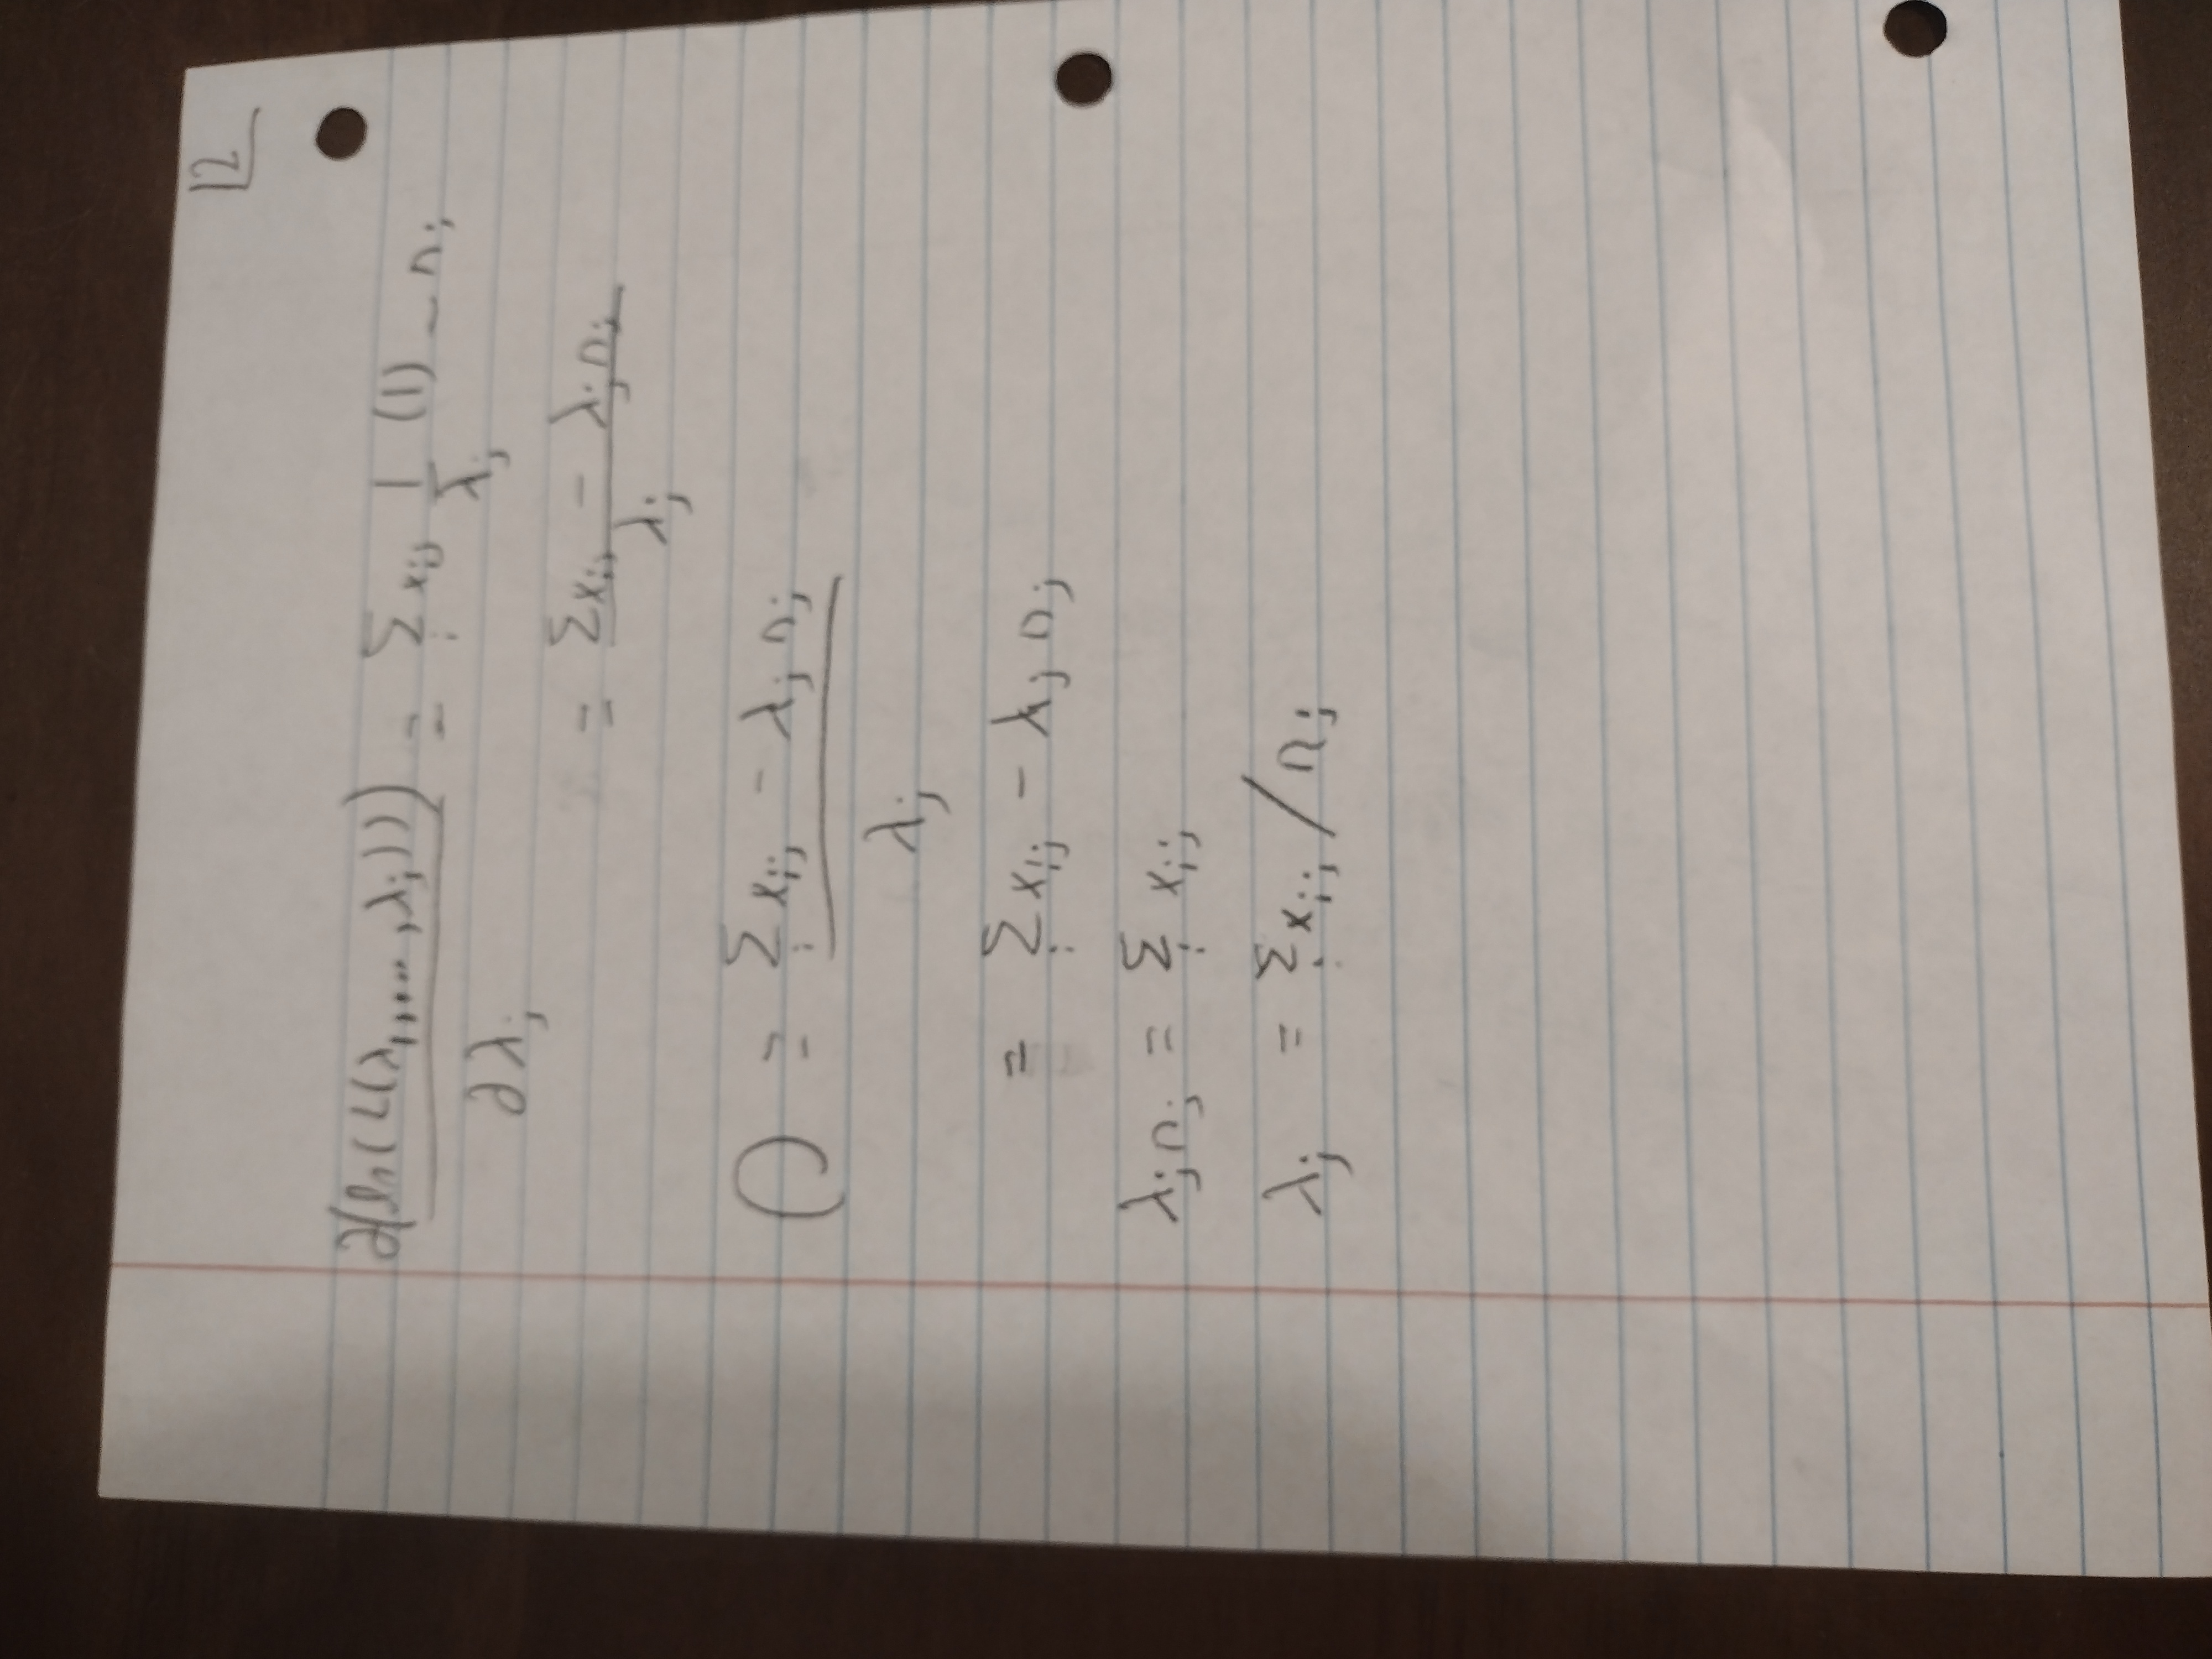 2
∂(ln(L(λ₁,...,λⱼ))) / ∂λⱼ = Σᵢ xᵢⱼ 1/λⱼ (1) - nⱼ
= (Σxᵢⱼ - λⱼnⱼ) / λⱼ
0 = (Σᵢ xᵢⱼ - λⱼnⱼ) / λⱼ
= Σᵢ xᵢⱼ - λⱼnⱼ
λⱼnⱼ = Σᵢ xᵢⱼ
λⱼ = Σᵢ xᵢⱼ / nⱼ